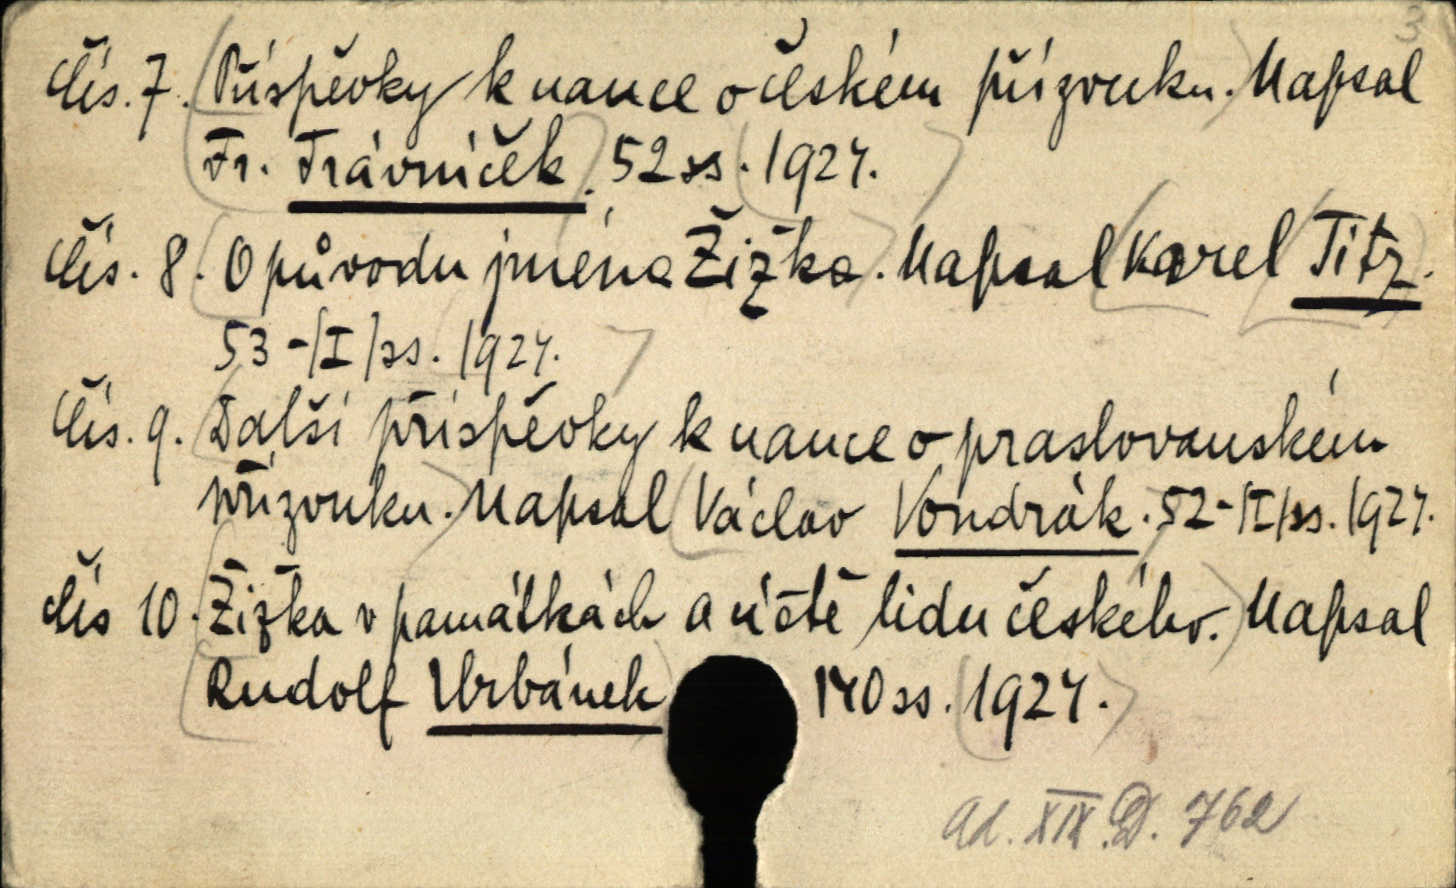 3
Čís. 7. Příspěvky k nauce o českém přízvuku. Napsal
Fr. Trávníček. 52 ss. 1924.
Čís. 8. O původu jména Žižka. Napsal Karel Titz.
53 - |I| ss. 1924.
Čís. 9. Další příspěvky k nauce o praslovanském
přízvuku. Napsal Václav Vondrák. 52 - |I| ss. 1924.
Čís 10. Žižka v památkách a úctě lidu českého. Napsal
Rudolf Urbánek 140 ss. 1924.
Ad. XIX. D. 762